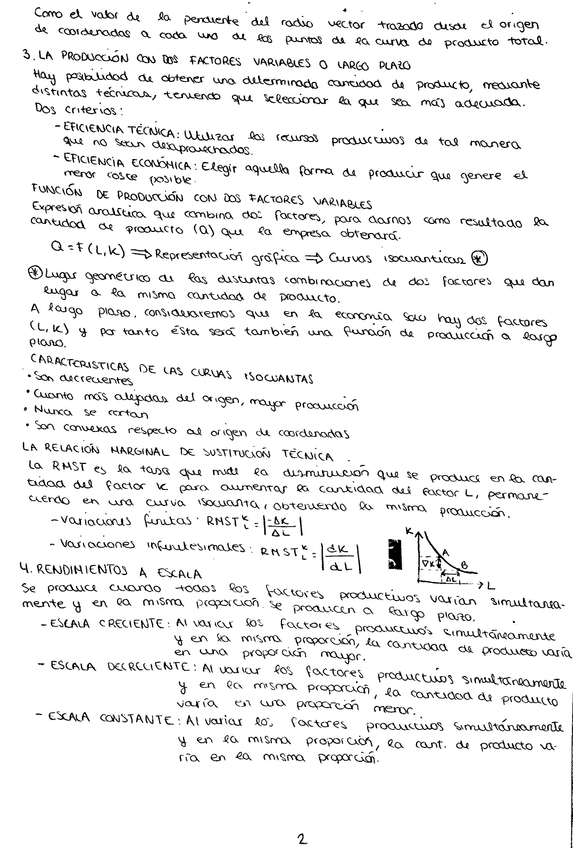 Como el valor de la pendiente del radio vector trazado desde el origen
de coordenadas a cada uno de los puntos de la curva de producto total.
3. LA PRODUCCIÓN CON DOS FACTORES VARIABLES O LARGO PLAZO
Hay posibilidad de obtener una determinada cantidad de producto, mediante
distintas técnicas, teniendo que seleccionar la que sea más adecuada.
Dos criterios:
- EFICIENCIA TÉCNICA: Utilizar los recursos productivos de tal manera
que no sean desaprovechados.
- EFICIENCIA ECONÓMICA: Elegir aquella forma de producir que genere el
menor coste posible.
FUNCIÓN DE PRODUCCIÓN CON DOS FACTORES VARIABLES
Expresión analítica que combina dos factores, para darnos como resultado la
cantidad de producto (Q) que la empresa obtendrá.
Q = F (L,K) ⇒ Representación gráfica ⇒ Curvas isocuánticas ⊛
⊛ Lugar geométrico de las distintas combinaciones de dos factores que dan
lugar a la misma cantidad de producto.
A largo plazo, consideraremos que en la economía solo hay dos factores
(L,K) y por tanto ésta será también una función de producción a largo
plazo.
CARACTERISTICAS DE LAS CURVAS ISOCUANTAS
• Son decrecientes
• Cuanto más alejadas del origen, mayor producción
• Nunca se cortan
• Son convexas respecto al origen de coordenadas
LA RELACIÓN MARGINAL DE SUSTITUCIÓN TÉCNICA
La RMST es la tasa que mide la disminución que se produce en la can-
tidad del factor K para aumentar la cantidad del factor L, permane-
ciendo en una curva isocuanta, obteniendo la misma producción.
- Variaciones finitas: RMST K L = |-ΔK / ΔL|
- Variaciones infinitesimales: RMST K L = |dK / dL|
K
A
B
∇K
ΔL
L
4. RENDIMIENTOS A ESCALA
Se produce cuando todos los factores productivos varían simultanea-
mente y en la misma proporción. Se producen a largo plazo.
- ESCALA CRECIENTE: Al variar los factores productivos simultáneamente
y en la misma proporción, la cantidad de producto varía
en una proporción mayor.
- ESCALA DECRECIENTE: Al variar los factores productivos simultáneamente
y en la misma proporción, la cantidad de producto
varía en una proporción menor.
- ESCALA CONSTANTE: Al variar los factores productivos simultáneamente
y en la misma proporción, la cant. de producto va-
ría en la misma proporción.
2